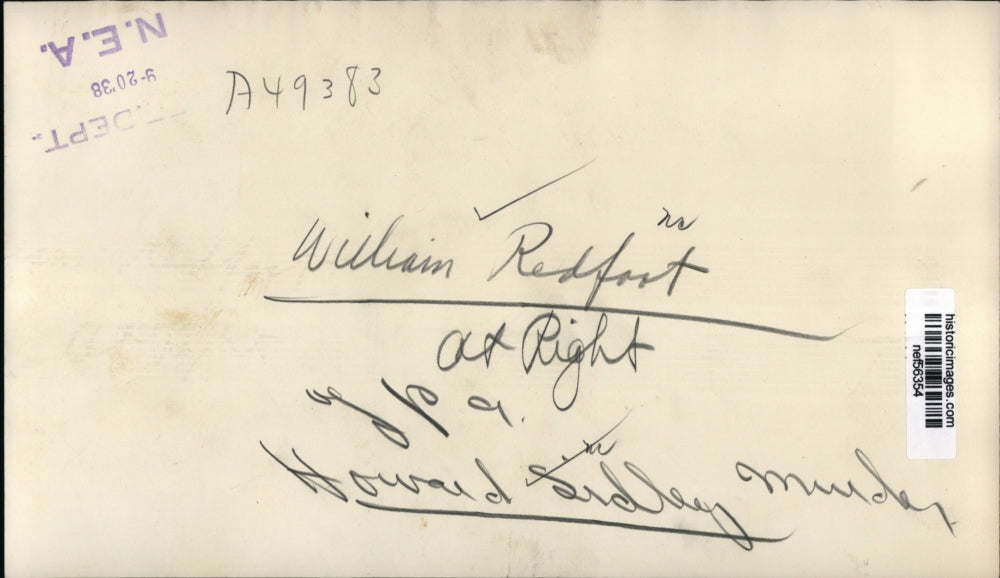 N.E.A.
9-20'38
DEPT.
A49383
William Redfoot
at Right
of Pa.
Howard Sidley Murder
historicimages.com
nef56354